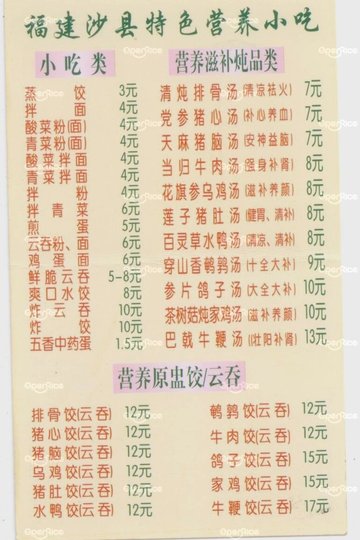 福建沙县特色营养小吃
小吃类
蒸饺 3元
拌面 4元
酸菜粉(面) 4元
青菜粉(面) 4元
酸菜拌面 4元
青菜拌面 4元
拌粉 4元
拌青菜 6元
煎蛋 5元
云吞粉、面 6元
鸡蛋面 6元
鲜脆云吞 5-8元
爽口水饺 8元
炸云吞 10元
炸饺 10元
五香中药蛋 1.5元
营养滋补炖品类
清炖排骨汤(清凉祛火) 7元
党参猪心汤(补心养血) 7元
天麻猪脑汤(安神益脑) 7元
当归牛肉汤(强身补肾) 8元
花旗参乌鸡汤(滋补养颜) 8元
莲子猪肚汤(健胃、清补) 8元
百灵草水鸭汤(清凉、清补) 8元
穿山香鹌鹑汤(十全大补) 9元
参片鸽子汤(大全大补) 10元
茶树菇炖家鸡汤(滋补养颜) 10元
巴戟牛鞭汤(壮阳补肾) 13元
营养原盅饺/云吞
排骨饺(云吞) 12元
猪心饺(云吞) 12元
猪脑饺(云吞) 12元
乌鸡饺(云吞) 12元
猪肚饺(云吞) 12元
水鸭饺(云吞) 12元
鹌鹑饺(云吞) 12元
牛肉饺(云吞) 12元
鸽子饺(云吞) 15元
家鸡饺(云吞) 15元
牛鞭饺(云吞) 17元
OpenRice